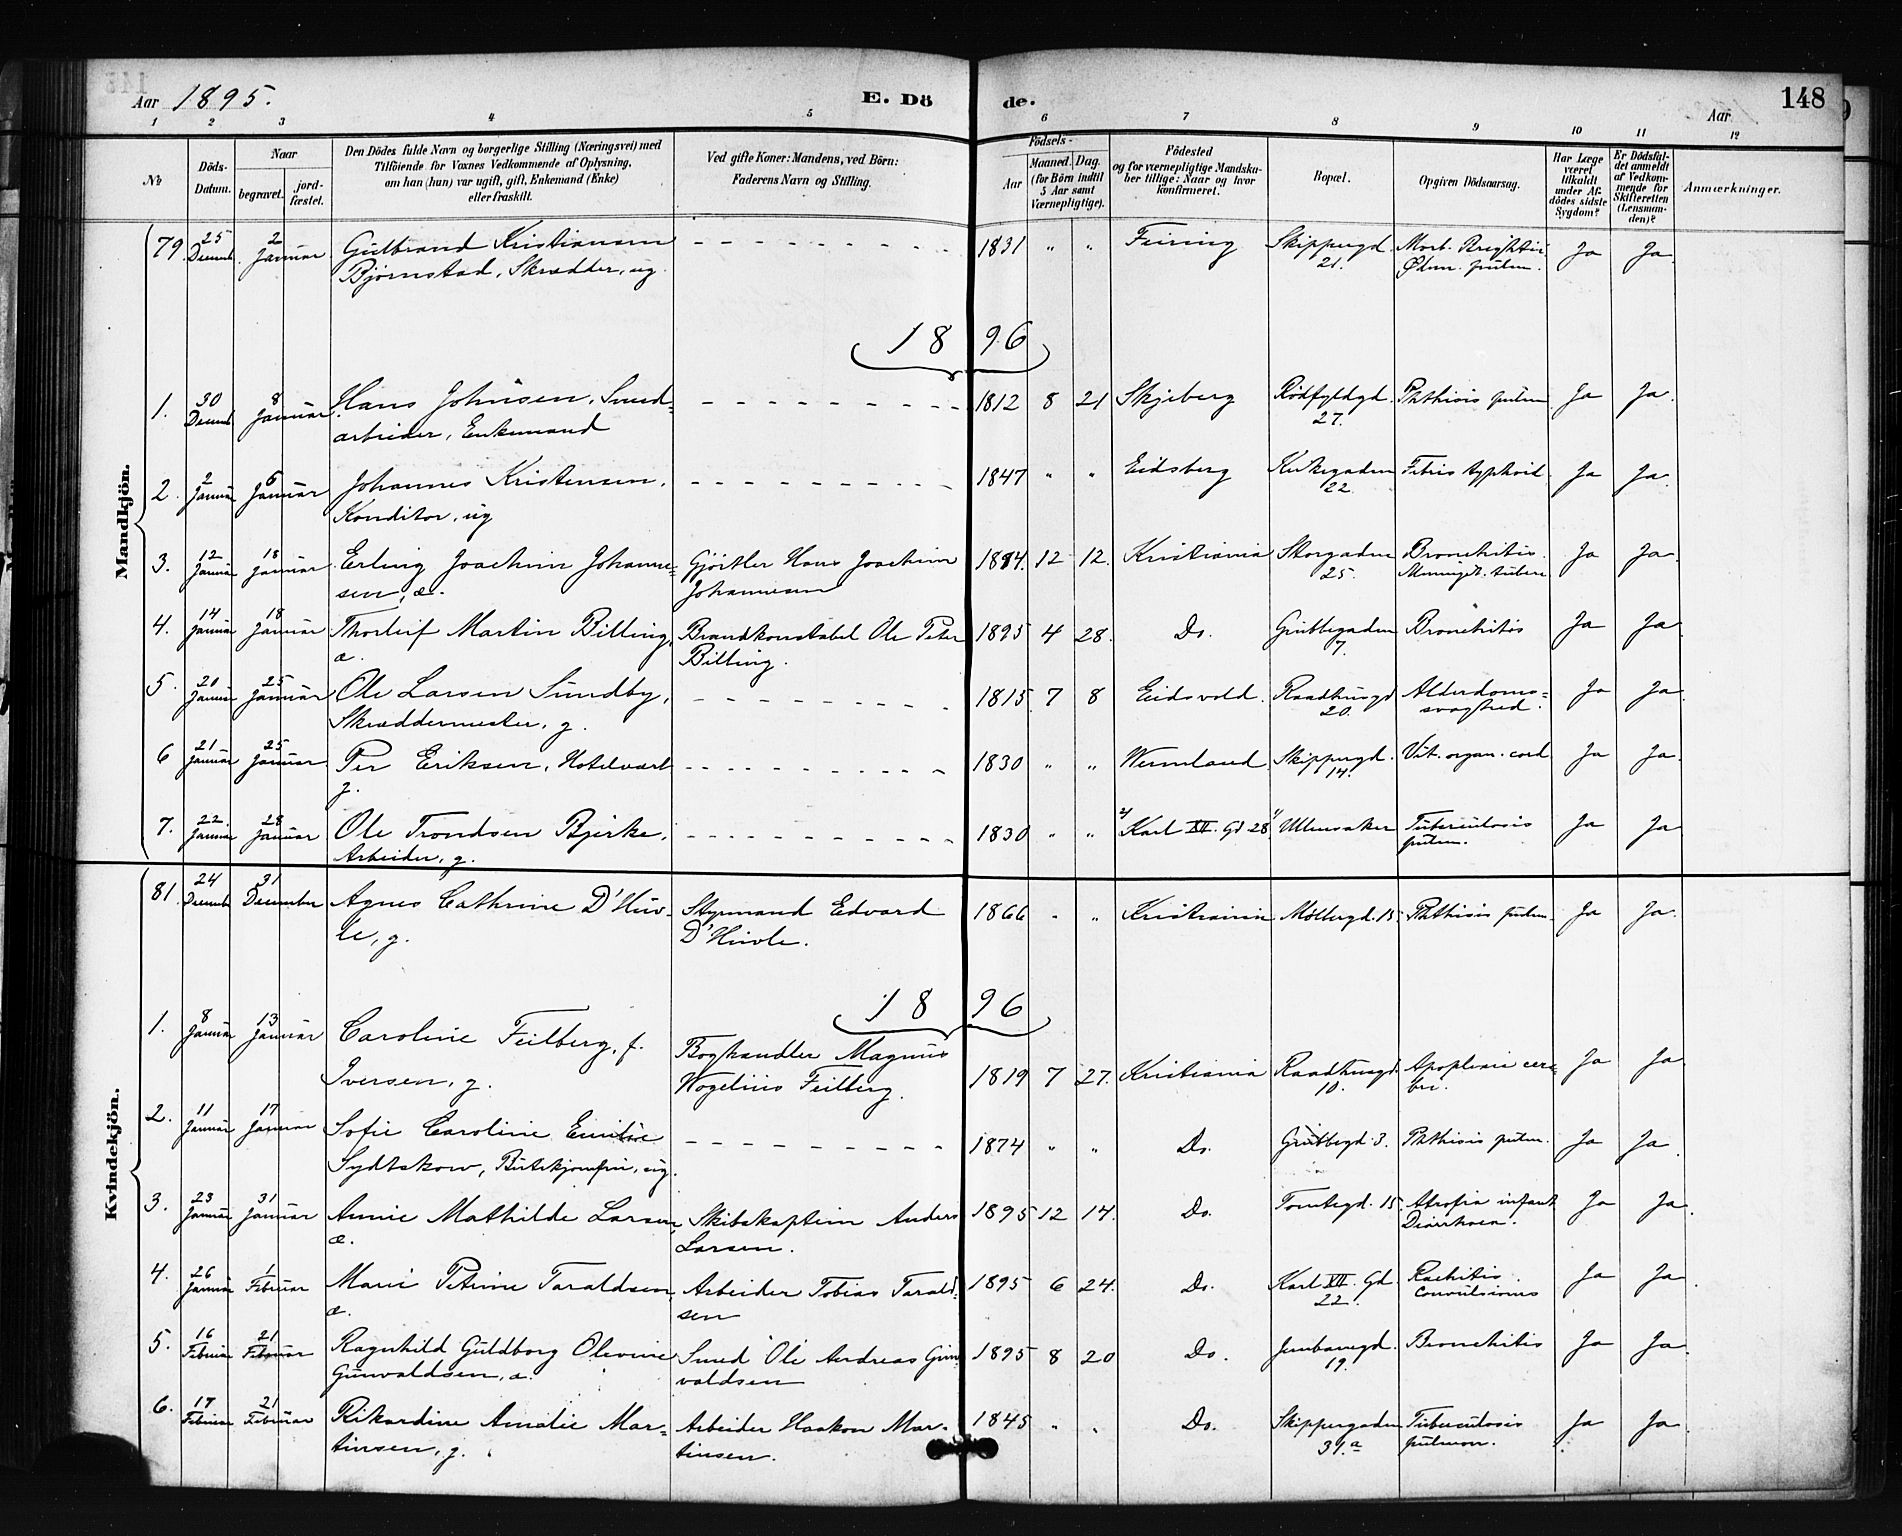 Aar 1895.
E. Dö de.
148
Aar
1 2 3 4 5 6 7 8 9 10 11 12
№
Döds-Datum.
Naar
begravet.
jord-fæstet.
Den Dödes fulde Navn og borgerlige Stilling (Næringsvei) med
Tilföiende for Voxnes Vedkommende af Oplysning,
om han (hun) var ugift, gift, Enkemand (Enke)
eller fraskilt.
Ved gifte Koner: Mandens, ved Börn:
Faderens Navn og Stilling.
Födsels-
Aar
Maaned. Dag.
(for Börn indtil
5 Aar samt
Værnepligtige).
Födested
og for værnepligtige Mandska-
ber tillige: Naar og hvor
konfirmeret.
Bopæl.
Opgiven Dödsaarsag.
Har Læge
været
tilkaldt
under Af-
dödes sidste
Sygdom?
Er Dödsfal-
det anmeldt
af Vedkom-
mende for
Skifteretten
(Lensman-
den)?
Anmærkninger.
Mandkjön.
79. 25 Decemb. 2 Januar Gulbrand Kristiansen 1831 " " Feiring Skippergd. 21. Morb. Brightii Ja Ja.
Bjørnstad, Skrædder, ug. Ødem. pulm.
18 96
1. 30 Decemb. 8 Januar Hans Johnsen, Smed- 1812 8 21 Skjeberg Rødfyldgd. 27. Phthisis pulm. Ja Ja.
arbeider, Enkemand
2. 2 Januar 6 Januar Johannes Kristensen, 1847 " " Eidsberg Kirkegaden 22. Febris typhoid. Ja Ja.
Konditor, ug
3. 12 Januar 18 Januar Erling Joachim Johanne- Gjörtler Hans Joachim 1894. 12 12. Kristiania Skorgaden 25. Bronchitis. Ja Ja.
sen, æ. Johannesen Meningit. tuberc
4. 14 Januar 18 Januar Thorleif Martin Billing, Brandkonstabel Ole Peter 1895 4 28. Do. Grubbegaden 7. Bronchitis Ja Ja.
æ. Billing.
5. 20 Januar 25 Januar Ole Larsen Sundby, 1815 7 8 Eidsvold. Raadhusgd 20. Alderdoms- Ja Ja.
Skræddermester, g. svaghed.
6 21 Januar 25 Januar Per Eriksen, Hotelvært 1830 " " Wermland Skippergd. 14. Vit. organ. cord Ja Ja.
g.
7. 22. Januar 28 Januar Ole Trondsen Bjerke, 1830 " " Karl XII. Gd 28 Ullensaker Tuberculosis Ja Ja
Arbeider, g. pulm.
Kvindekjön.
81. 24 Decemb 31 December Agnes Cathrine D'Huv- Styrmand Edvard 1866 " " Kristiania Møllergd. 15 Phthisis pulm. Ja Ja.
le, g. D'Huvle.
18 96
1. 8 Januar 13 Januar Caroline Feilberg, f. Boghandler Magnus
Iversen, g. Wogelius Feilberg. 1819 7 27. Kristiania Raadhusgd 10. Apoplexia cere- Ja Ja.
bri.
2. 11 Januar 17 Januar Sofie Caroline Emilie 1874 " " Do. Grubbegd. 3. Phthisis pulm. Ja Ja.
Sydtskow, Butikjomfru, ug.
3. 23 Januar 31 Januar Annie Mathilde Larsen, Skibskaptein Anders 1895 12 14. Do. Tomtegd. 15. Atrofia infant Ja Ja.
æ. Larsen. Diarrhoea.
4. 26 Januar 1 Februar Marie Petrine Taraldsen, Arbeider Tobias Tarald- 1895 6 24. Do. Karl XII. Gd. 22. Rachitis. Ja Ja.
æ. sen Convulsiones
5. 16 Februar 21 Februar Ragnhild Guldborg Olevine Smed Ole Andreas Gun 1895 8 20 Do. Jernbanegd. 19. Bronchitis Ja Ja.
Gunvaldsen, æ. valdsen
6. 17 Februar 21 Februar Rikardine Amalie Mar- Arbeider Haakon Mar- 1845 " " Do. Skippergaden 31.a Tuberculosis Ja Ja.
tinsen, g. tinsen. pulmon.